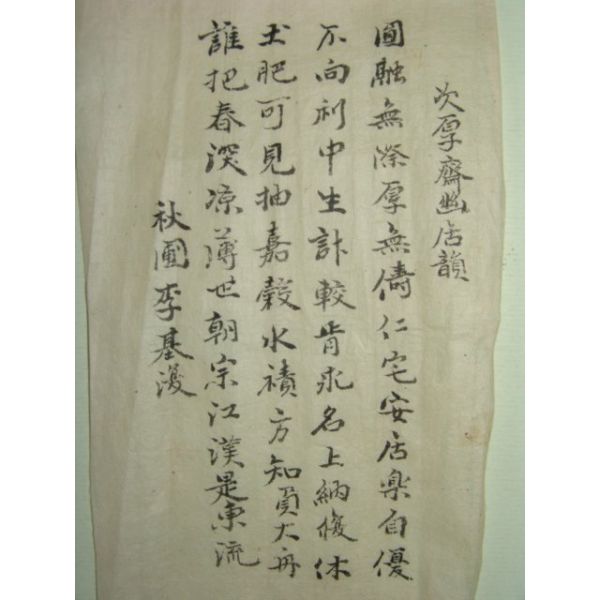 次厚齋幽居韻
圓融無際厚無儔仁宅安居樂自優
不向利中生計較肯求名上納復休
土肥可見抽嘉穀水積方知負大舟
誰把春深凉薄世朝宗江漢是東流
秋圃李基濩